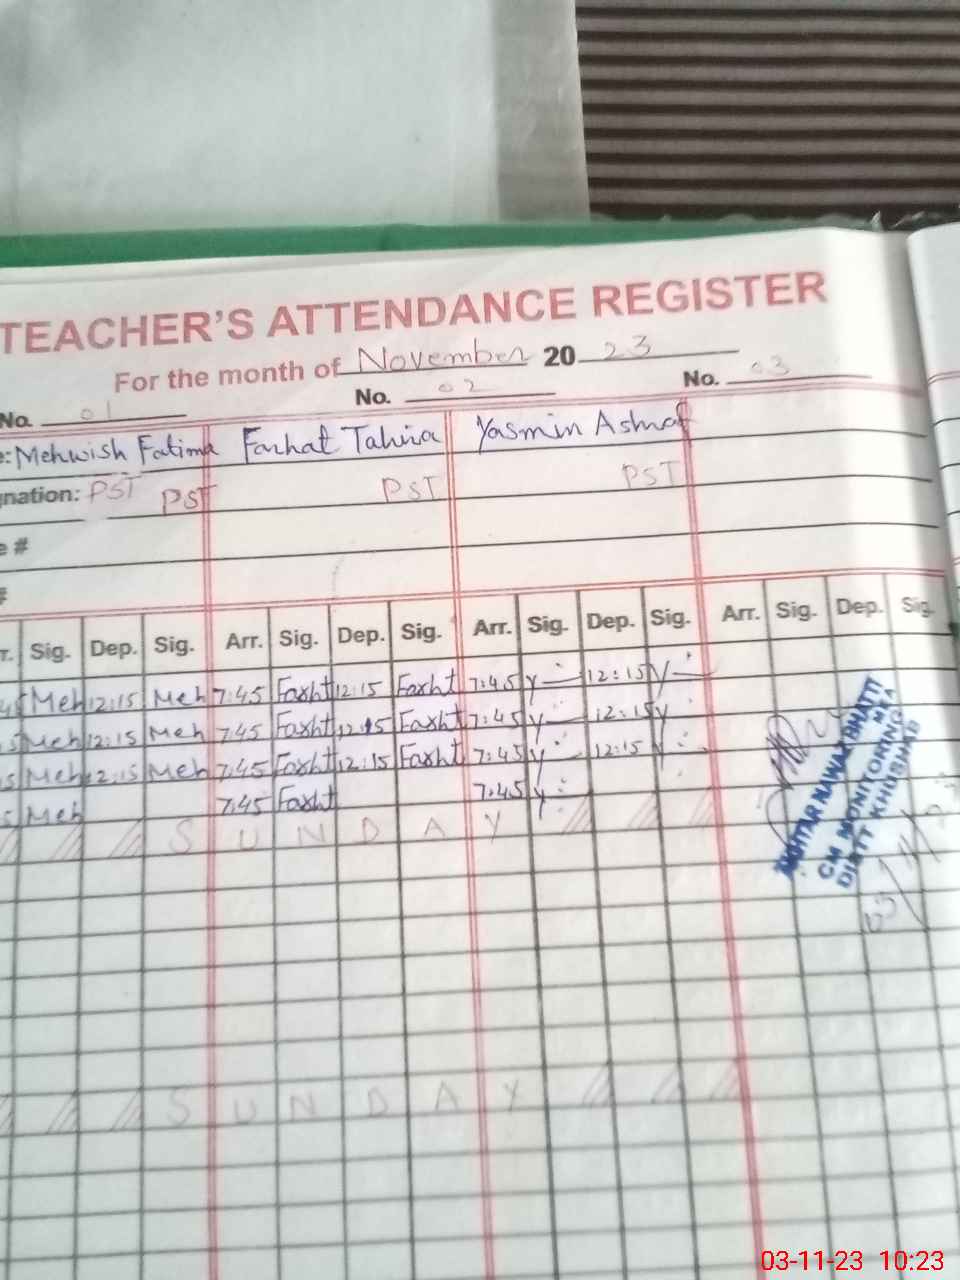 TEACHER'S ATTENDANCE REGISTER
For the month of November 20 23
No. 01 No. 02 No. 03
e: Mehwish Fatima Farhat Tahira Yasmin Ashraf
gnation: PST PST PST PST
e #
#
r. Sig. Dep. Sig. Arr. Sig. Dep. Sig. Arr. Sig. Dep. Sig. Arr. Sig. Dep. Sig.
45 Meh 12:15 Meh 7:45 Farht 12:15 Farht 7:45 y 12:15 y
5 Meh 12:15 Meh 7:45 Farht 12:15 Farht 7:45 y 12:15 y
5 Meh 12:15 Meh 7:45 Farht 12:15 Farht 7:45 y 12:15 y
5 Meh 7:45 Farht 7:45 y
SUNDAY
AKHTAR NAWAZ BHATTI
CM MONITORING MEA
DISTT KHUSHAB
SUNDAY
03-11-23 10:23